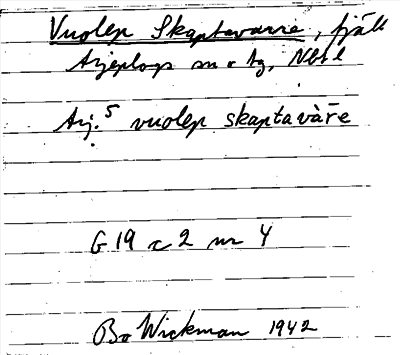 Vuolep Skaptavarre, fjäll
Arjeplogs sn o tg, Nbt l
Arj.⁵ vuolep skaptavàrᵉe
G 19 c 2 nr 4
Bo Wickman 1942